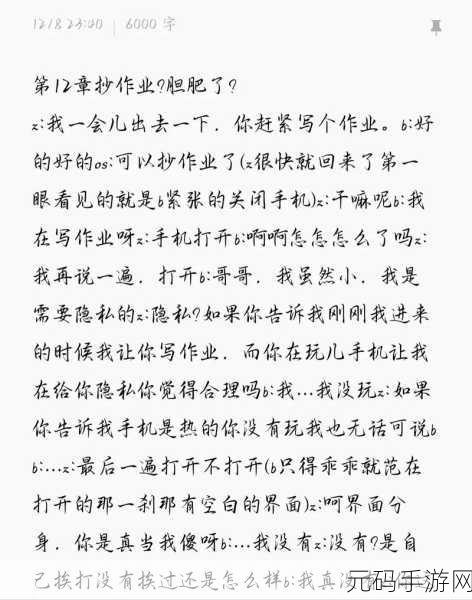 12/8 23:40 | 6000 字
第12章抄作业?胆肥了?
z:我一会儿出去一下，你赶紧写个作业。b:好
的好的os:可以抄作业了(z很快就回来了第一
眼看见的就是b紧张的关闭手机)z:干嘛呢b:我
在写作业呀z:手机打开b:啊啊怎怎怎么了吗z:
我再说一遍，打开b:哥哥，我虽然小，我是
需要隐私的z:隐私?如果你告诉我刚刚我进来
的时候我让你写作业，而你在玩儿手机让我
在给你隐私你觉得合理吗b:我...我没玩z:如果
你告诉我手机是热的你没有玩我也无话可说b
b:...z:最后一遍打开不打开(b只得乖乖就范在
打开的那一刹那有空白的界面)z:呵界面分
身，你是真当我傻呀b:...我没有z:没有?是自
己挨打没有挨过还是怎么样b:我真没有
元码手游网